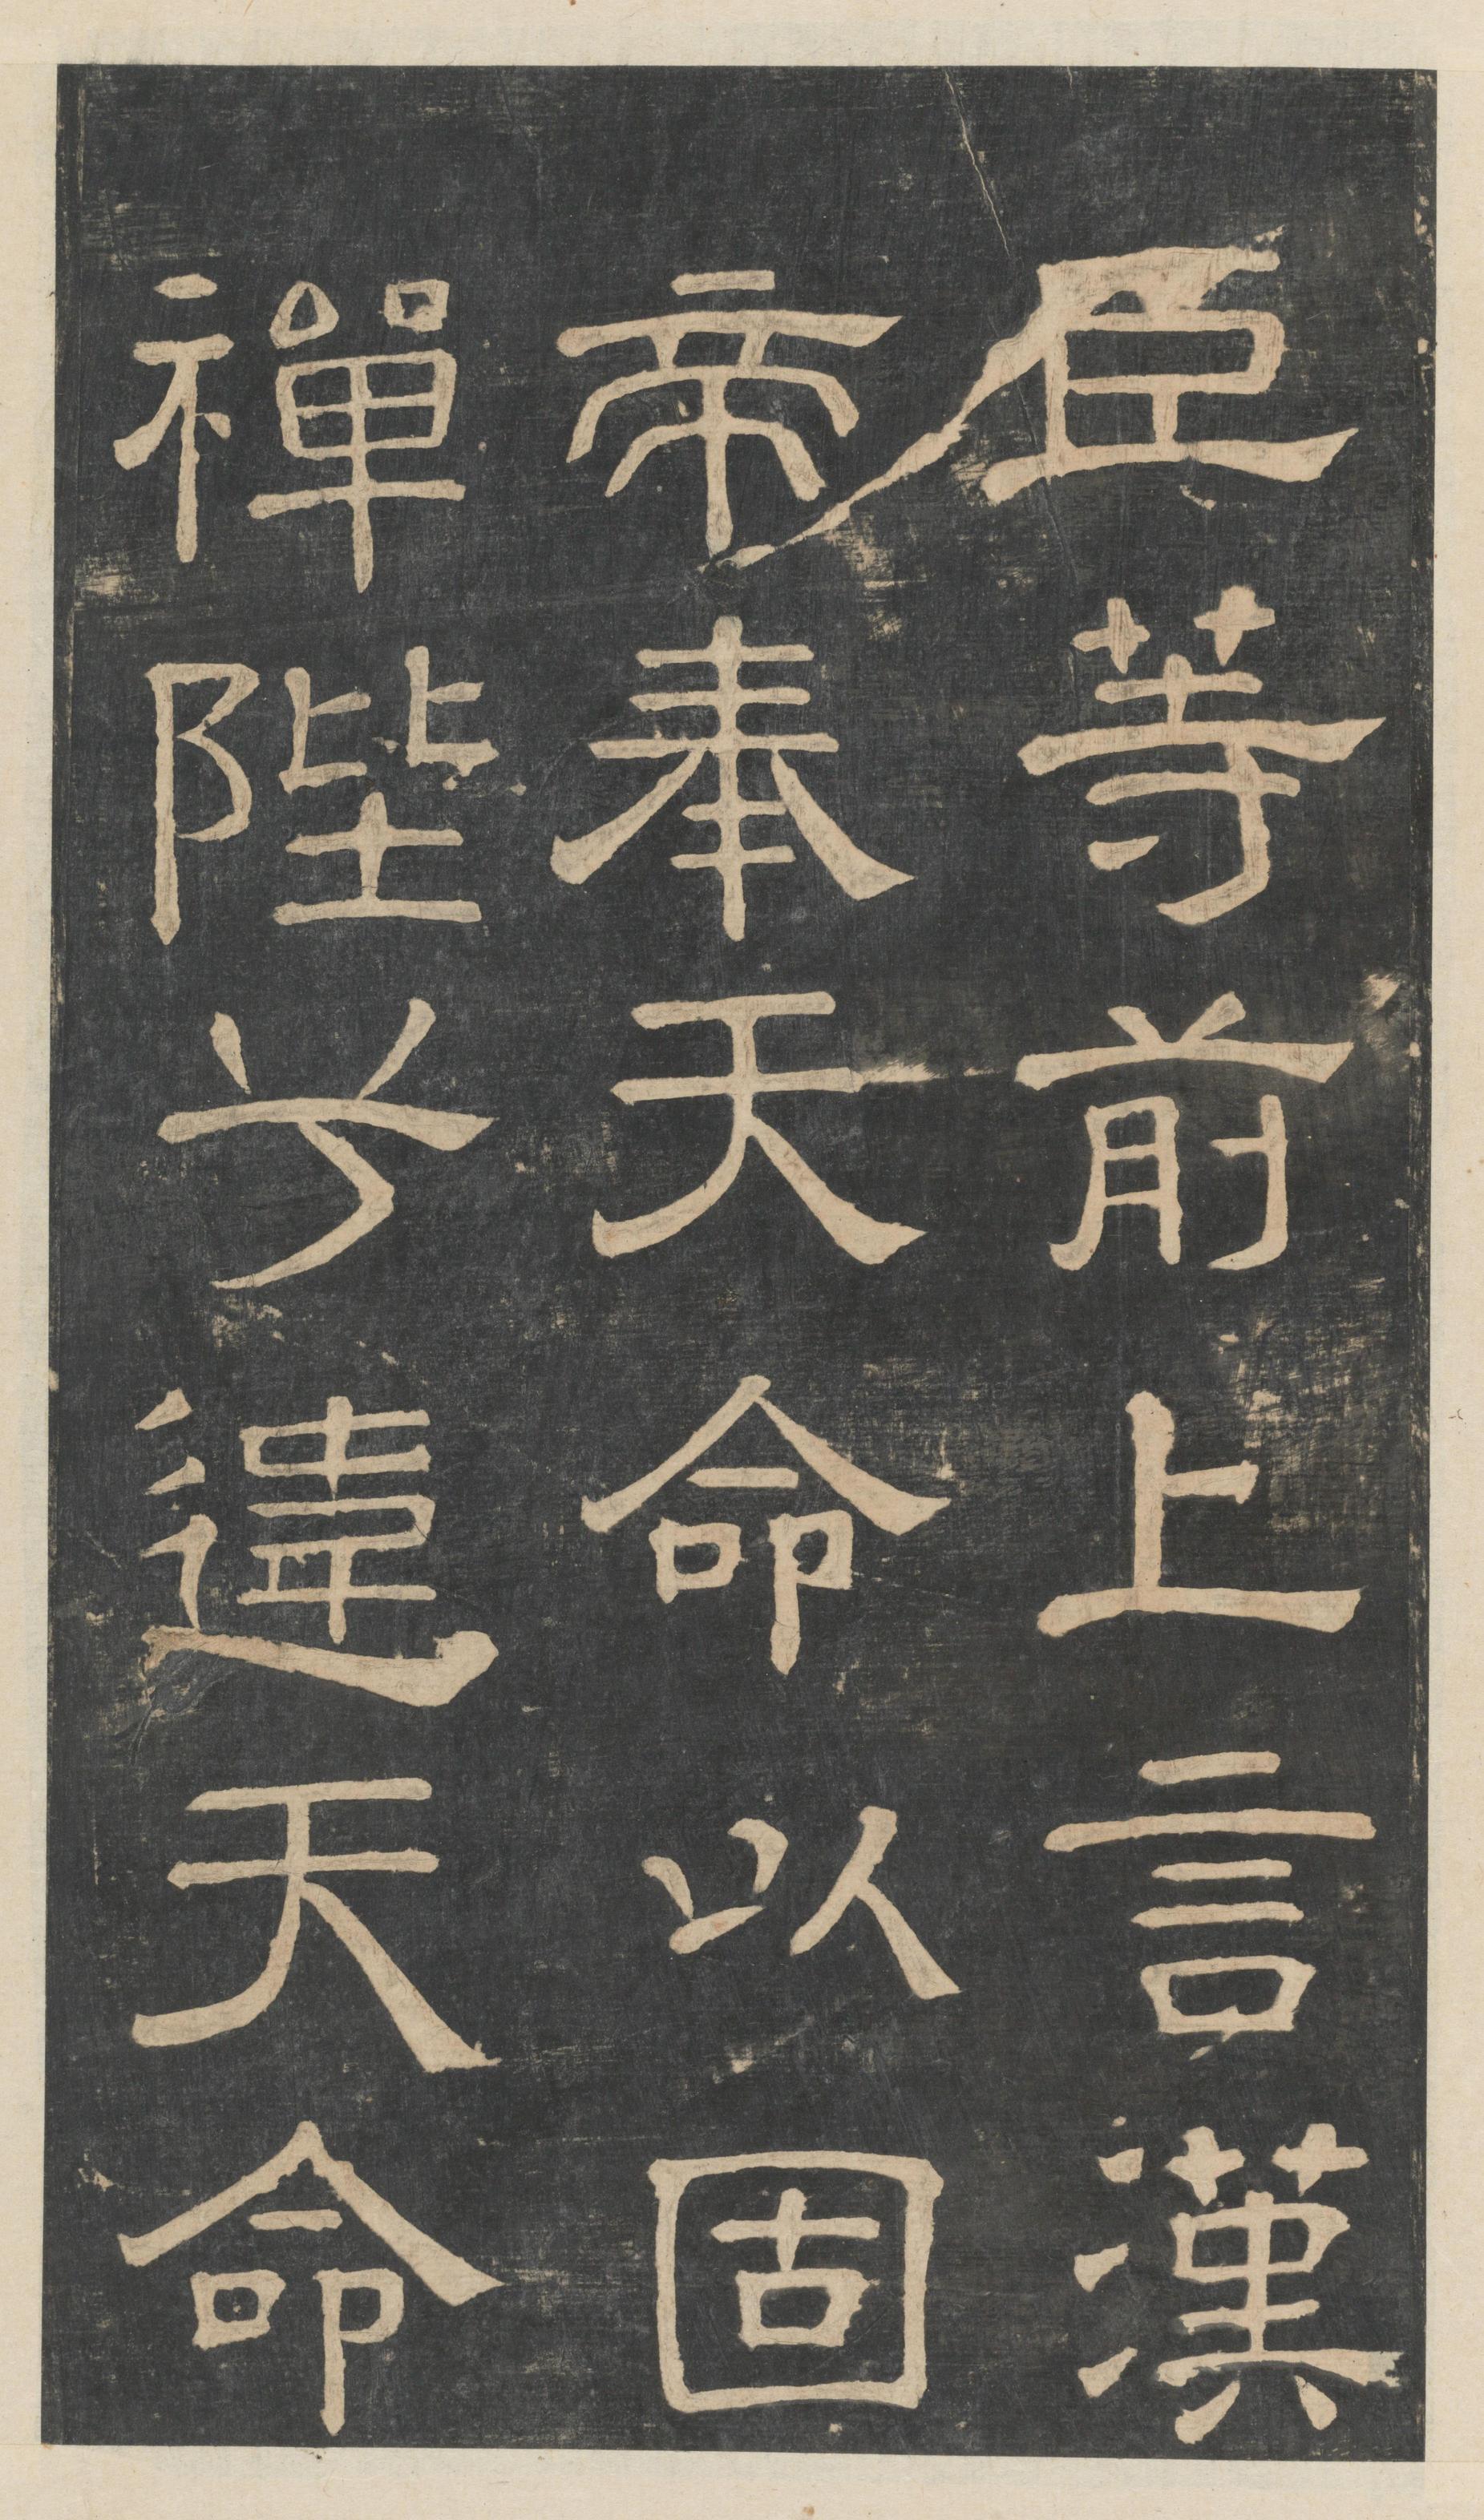 臣等前上言漢
帝奉天命以固
禪陛兮違天命